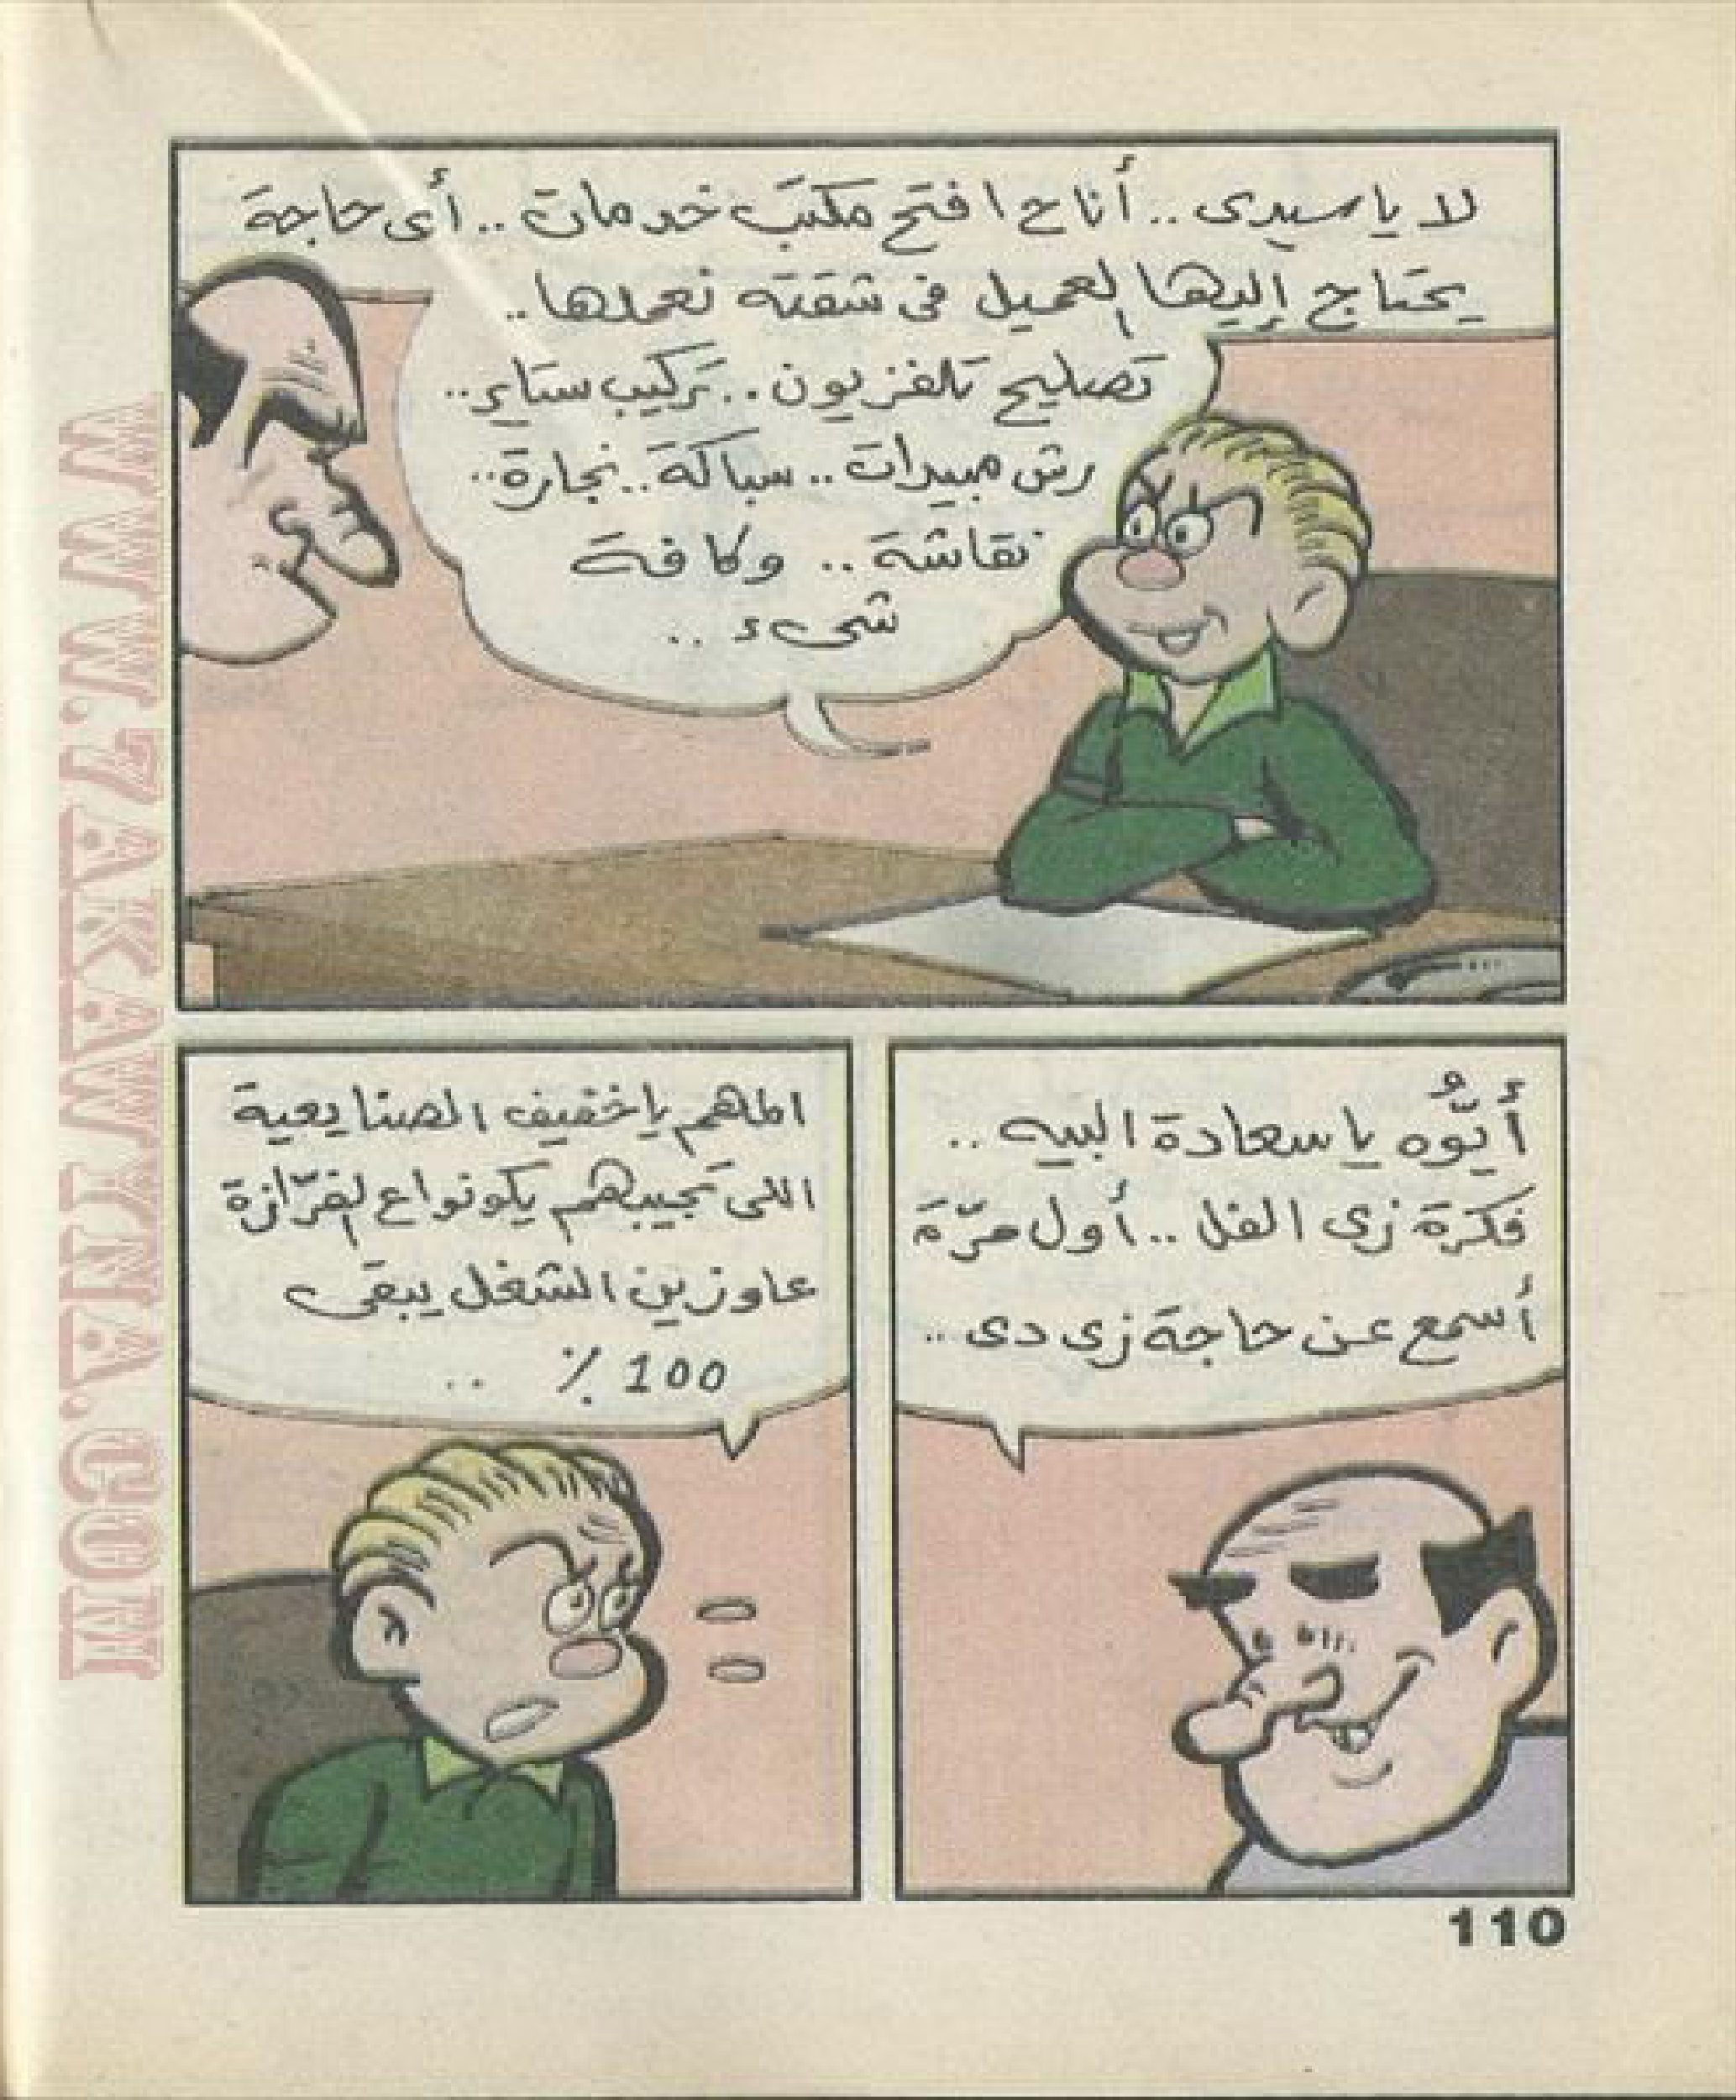 لا يا سيدى .. أنا ح افتح مكتب خدمات .. أى حاجة
يحتاج إليها العميل فى شقته نعملها ..
تصليح تلفزيون .. تركيب ستاير ..
رش مبيدات .. سباكة .. نجارة ..
نقاشة .. وكافة
شىء ..
أيّوه يا سعادة البيه ..
فكرة زى الفل .. أول مرّة
أسمع عن حاجة زى دى ..
المهم يا خفيف الصنايعية
اللى تجيبهم يكونوا ع الفرّازة
عاوزين الشغل يبقى
100 % ..
110
WWW.7AKAWITNA.COM